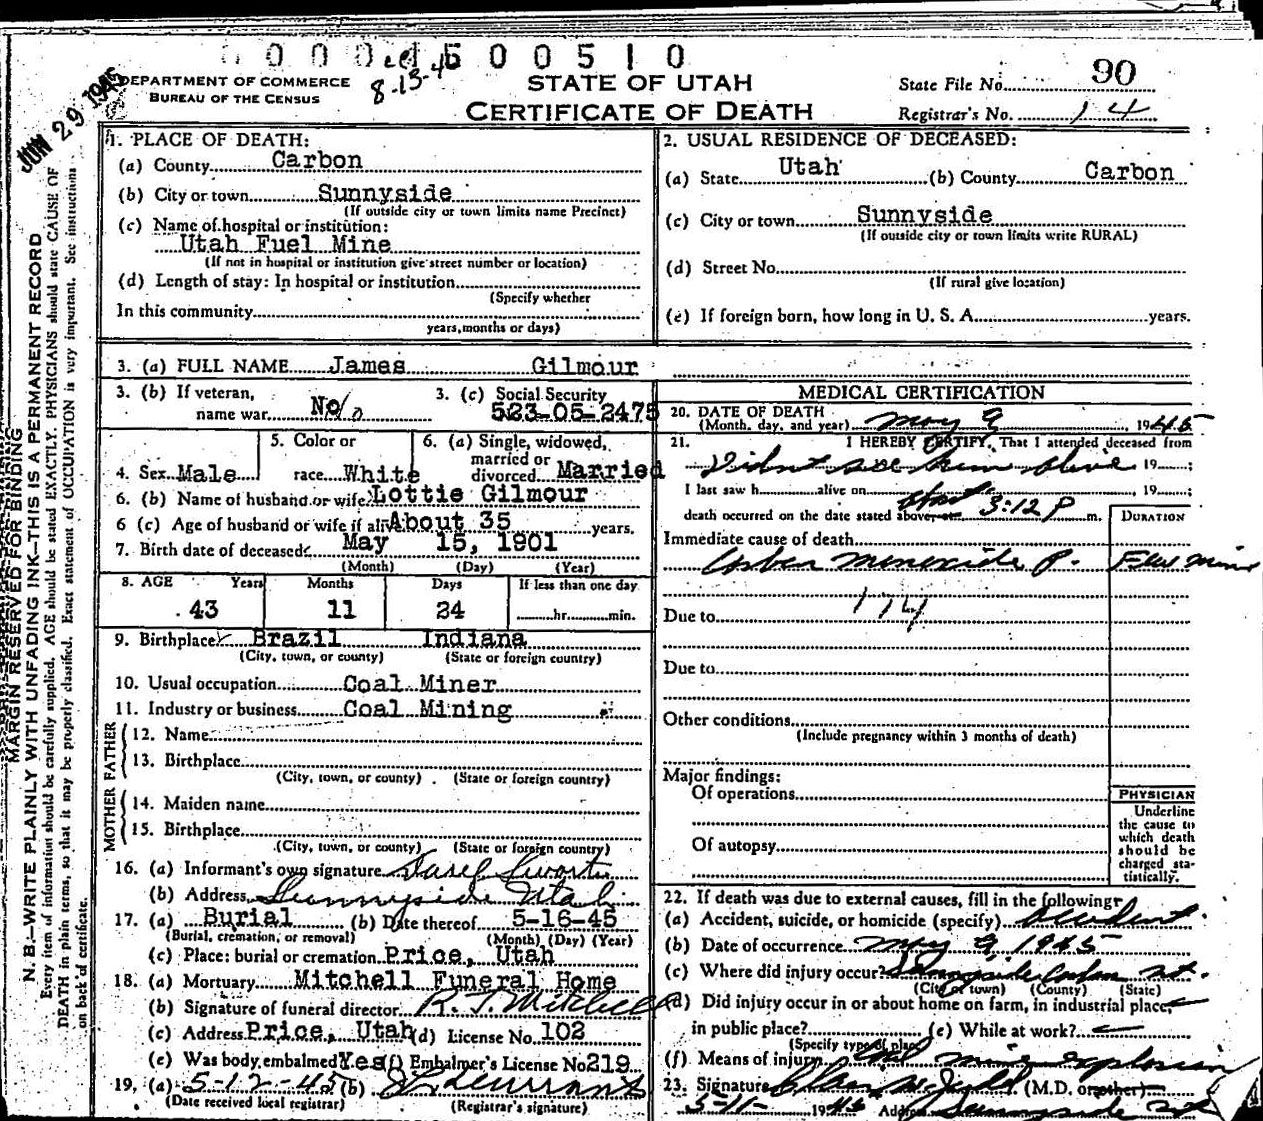 0 0 0 4 5 0 0 5 1 0
JUN 29 1945
8-13-45
DEPARTMENT OF COMMERCE
BUREAU OF THE CENSUS
STATE OF UTAH
CERTIFICATE OF DEATH
State File No. 90
Registrar's No. 14
N. B.—WRITE PLAINLY WITH UNFADING INK—THIS IS A PERMANENT RECORD
MARGIN RESERVED FOR BINDING
Every item of information should be carefully supplied. AGE should be stated EXACTLY. PHYSICIANS should state CAUSE OF
DEATH in plain terms, so that it may be properly classified. Exact statement of OCCUPATION is very important. See instructions
on back of certificate.
1. PLACE OF DEATH:
(a) County Carbon
(b) City or town Sunnyside
(If outside city or town limits name Precinct)
(c) Name of hospital or institution:
Utah Fuel Mine
(If not in hospital or institution give street number or location)
(d) Length of stay: In hospital or institution
(Specify whether
In this community
years, months or days)
2. USUAL RESIDENCE OF DECEASED:
(a) State Utah (b) County Carbon
(c) City or town Sunnyside
(If outside city or town limits write RURAL)
(d) Street No.
(If rural give location)
(e) If foreign born, how long in U. S. A. years.
3. (a) FULL NAME James Gilmour
3. (b) If veteran,
name war No
3. (c) Social Security
523-05-2475
4. Sex Male
5. Color or
race White
6. (a) Single, widowed,
married or
divorced Married
6. (b) Name of husband or wife Lottie Gilmour
6 (c) Age of husband or wife if alive About 35 years.
7. Birth date of deceased May 15, 1901
(Month) (Day) (Year)
8. AGE Years Months Days If less than one day
43 11 24 hr. min.
9. Birthplace Brazil Indiana
(City, town, or county) (State or foreign country)
10. Usual occupation Coal Miner
11. Industry or business Coal Mining
FATHER
12. Name
13. Birthplace
(City, town, or county) (State or foreign country)
MOTHER
14. Maiden name
15. Birthplace
(City, town, or county) (State or foreign country)
16. (a) Informant's own signature
(b) Address Sunnyside Utah
17. (a) Burial (b) Date thereof 5-16-45
(Burial, cremation, or removal) (Month) (Day) (Year)
(c) Place: burial or cremation Price, Utah
18. (a) Mortuary Mitchell Funeral Home
(b) Signature of funeral director R. J. Mitchell
(c) Address Price, Utah (d) License No. 102
(e) Was body embalmed Yes (f) Embalmer's License No 219
19. (a) 5-12-45 (b)
(Date received local registrar) (Registrar's signature)
MEDICAL CERTIFICATION
20. DATE OF DEATH
(Month, day, and year) May 9, 1945
21. I HEREBY CERTIFY, That I attended deceased from
Didnt see him alive 19 ;
I last saw h alive on , 19 ;
death occurred on the date stated above at about 3:12 P m.
DURATION
Immediate cause of death
Carbon monoxide P. Few min
Due to 174
Due to
Other conditions
(Include pregnancy within 3 months of death)
Major findings:
Of operations
Of autopsy
PHYSICIAN
Underline
the cause to
which death
should be
charged sta-
tistically.
22. If death was due to external causes, fill in the following:
(a) Accident, suicide, or homicide (specify) Accident
(b) Date of occurrence May 9, 1945
(c) Where did injury occur? Sunnyside Carbon Ut.
(City or town) (County) (State)
(d) Did injury occur in or about home on farm, in industrial place, ✓
in public place? (e) While at work? ✓
(Specify type of place)
(f) Means of injury Coal mine explosion
23. Signature (M.D. or other)
5-11- 1945 Address Sunnyside Ut